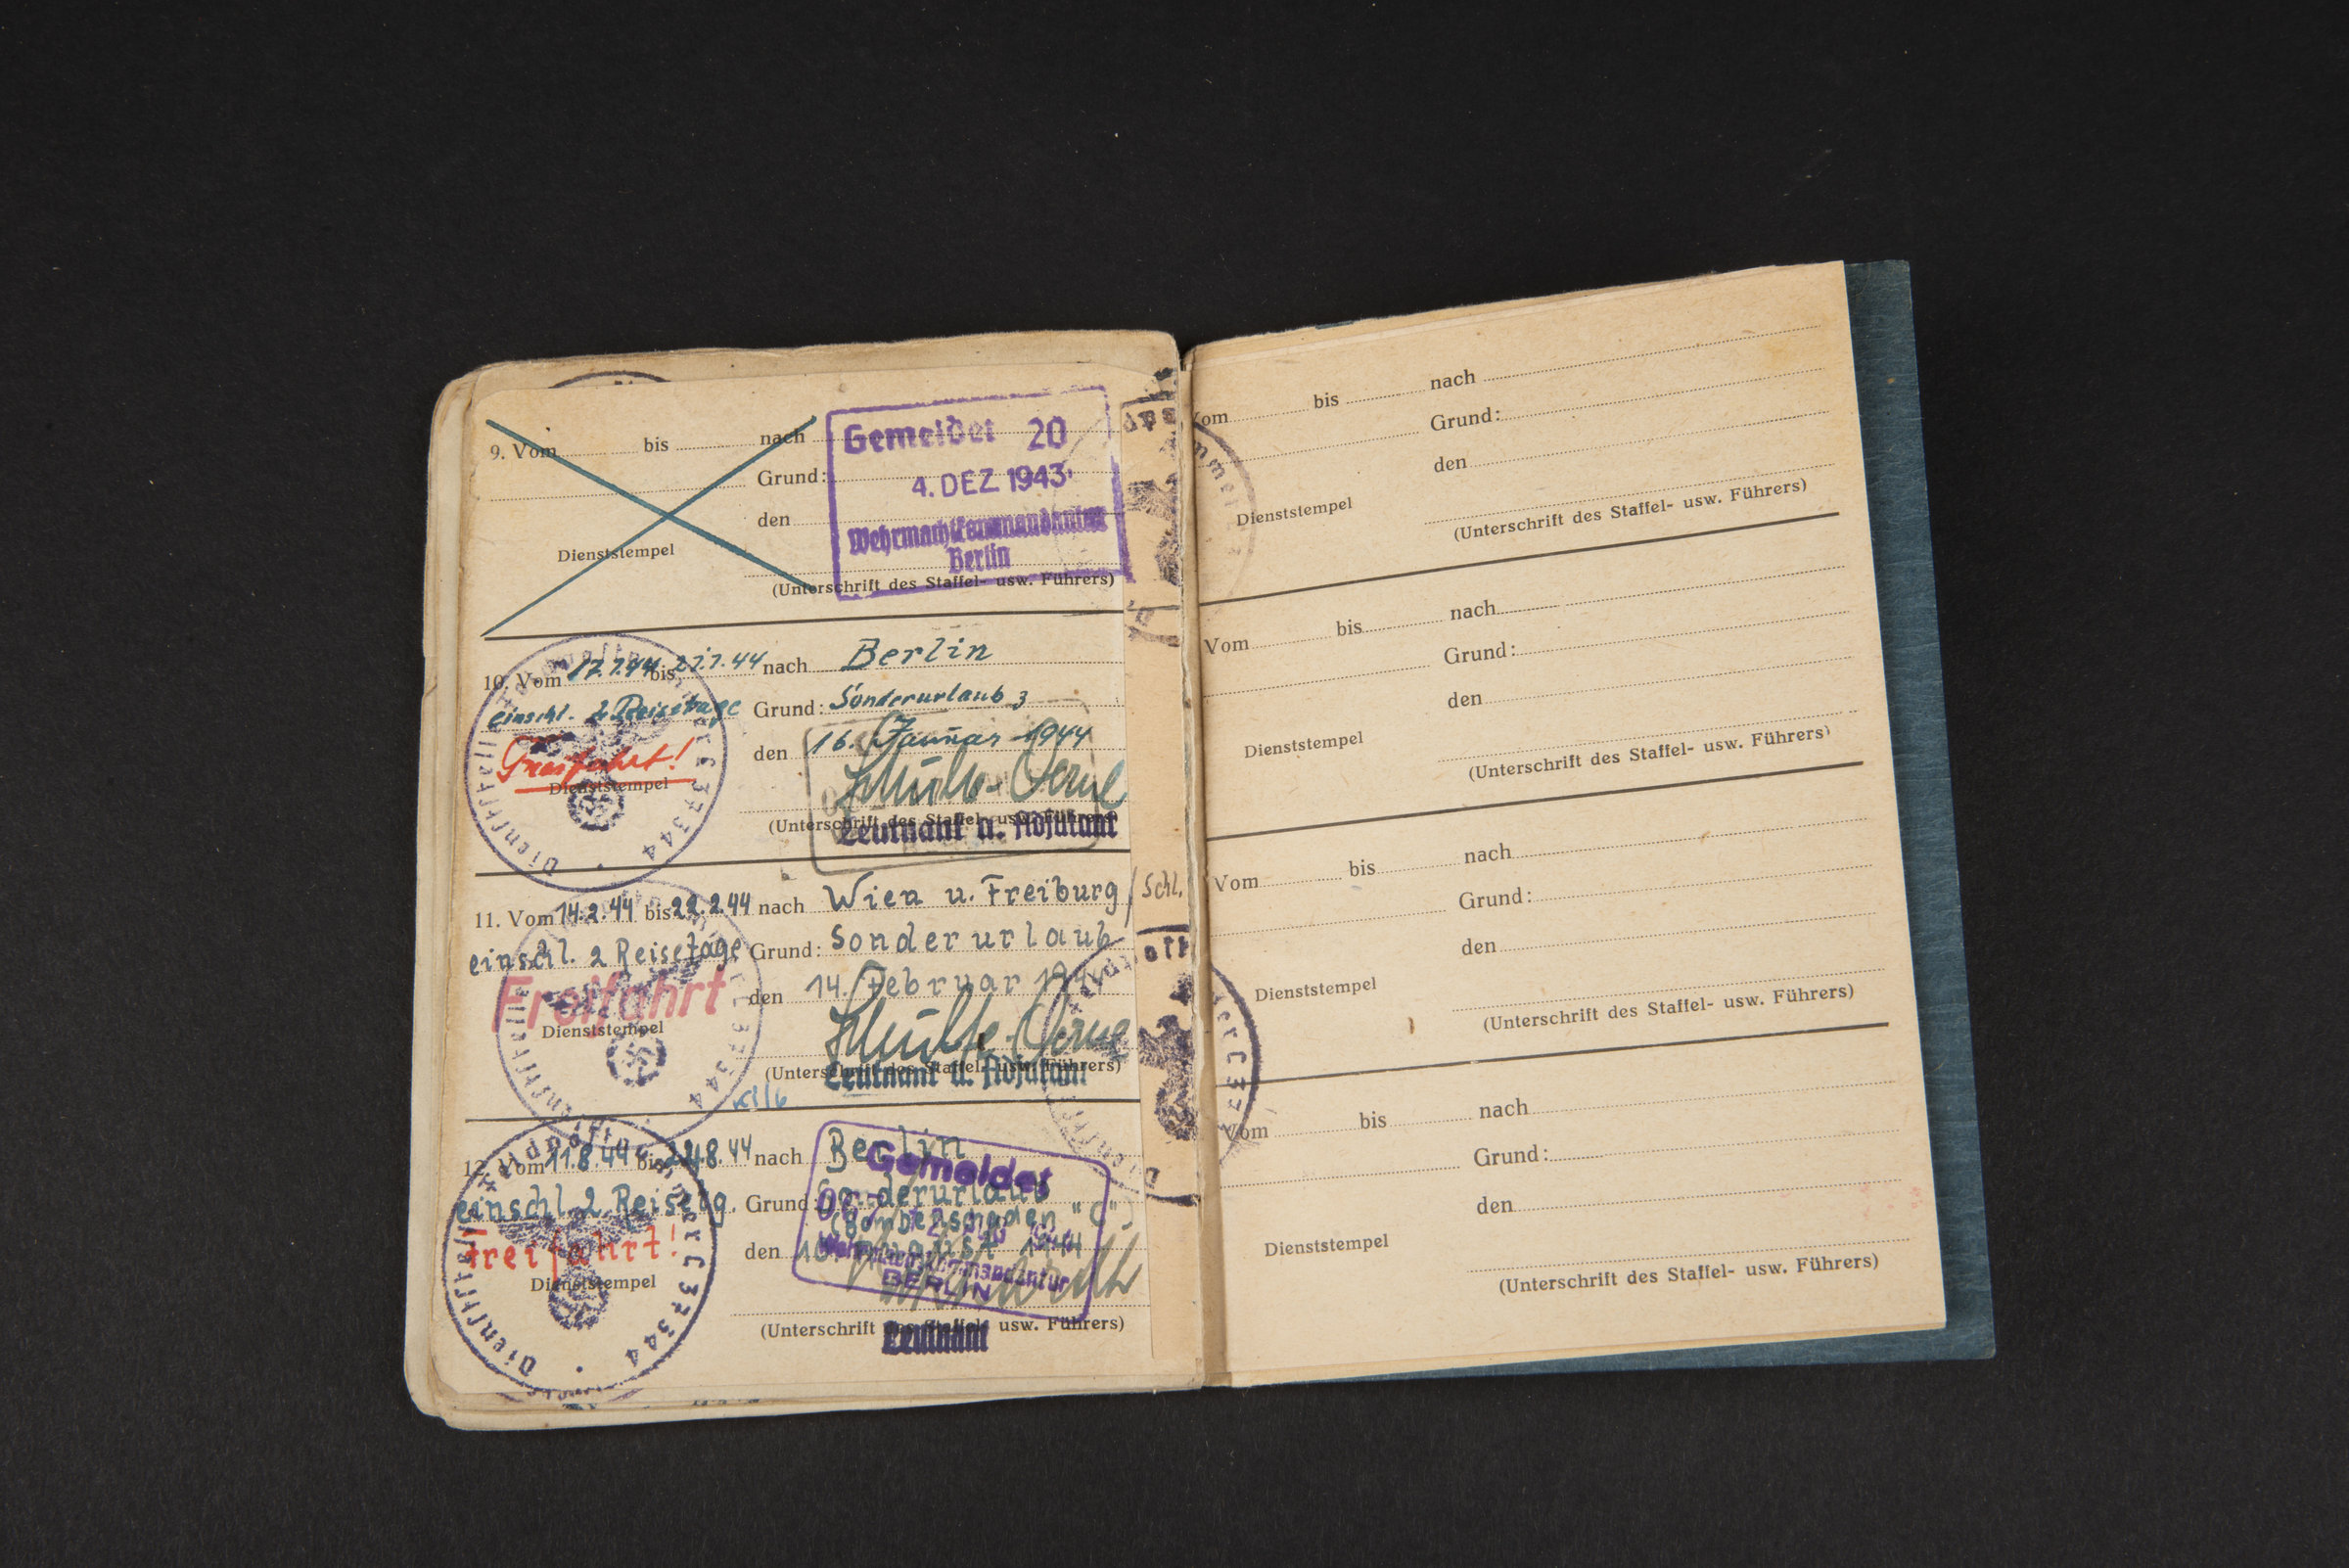 9. Vom bis nach
Gemeldet 20
Grund:
4. DEZ. 1943
den
Wehrmachtkommandantur
Berlin
Dienststempel
(Unterschrift des Staffel- usw. Führers)
10. Vom 17.1.44 bis 27.1.44 nach Berlin
einschl. 2 Reisetage Grund: Sonderurlaub 3
den 16. Januar 1944
Freifahrt!
Dienststempel
(Unterschrift des Staffel- usw. Führers)
Leutnant u. Adjutant
Dienststelle Feldpostnummer C 37344
11. Vom 14.2.44 bis 22.2.44 nach Wien u. Freiburg/Schl.
einschl. 2 Reisetage Grund: Sonderurlaub
den 14. Februar 1944
Freifahrt
Dienststempel
(Unterschrift des Staffel- usw. Führers)
Leutnant u. Adjutant
12. Vom 11.8.44 bis 8.44 nach Berlin
einschl. 2 Reisetg. Grund: Sonderurlaub
(Bombenschaden "C")
den 10. August 1944
Freifahrt!
Gemeldet
Wehrmachtkommandantur
BERLIN
Dienststempel
(Unterschrift des Staffel- usw. Führers)
Leutnant
Dienststelle Feldpostnummer C 37344
Vom bis nach
Grund:
den
Dienststempel
(Unterschrift des Staffel- usw. Führers)
Vom bis nach
Grund:
den
Dienststempel
(Unterschrift des Staffel- usw. Führers)
Vom bis nach
Grund:
den
Dienststempel
(Unterschrift des Staffel- usw. Führers)
Vom bis nach
Grund:
den
Dienststempel
(Unterschrift des Staffel- usw. Führers)